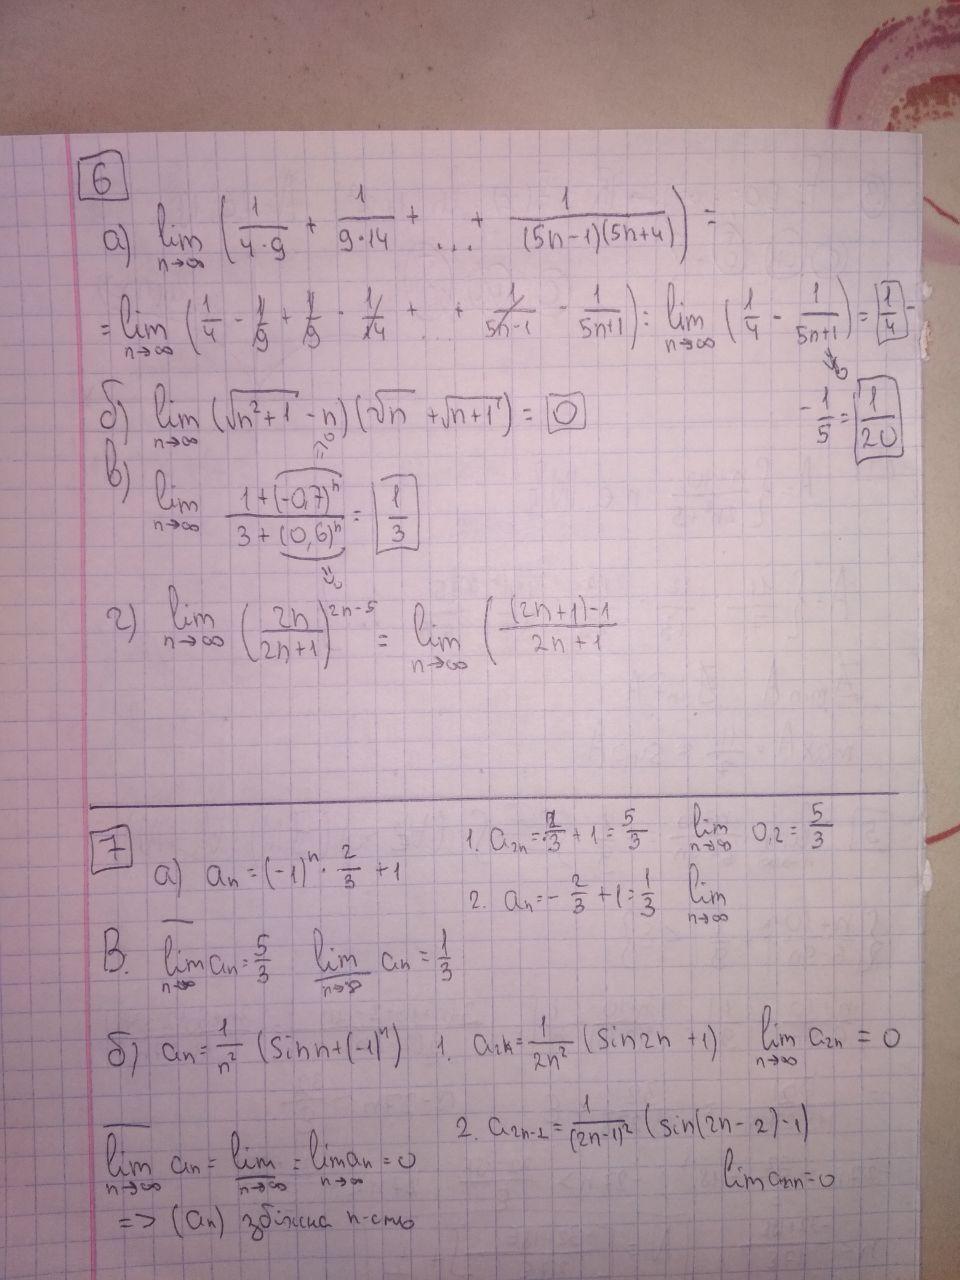 6
а) lim n→∞ (1/(4·9) + 1/(9·14) + ... + 1/((5n−1)(5n+4))) =
= lim n→∞ (1/4 − 1/9 + 1/9 − 1/14 + ... + 1/(5n−1) − 1/(5n+1)) = lim n→∞ (1/4 − 1/(5n+1)) = 1/4 ·
· 1/5 = 1/20
б) lim n→∞ (√(n²+1) − n)(√n + √(n+1)) = 0
в) lim n→∞ (1+(−0,7)ⁿ)/(3+(0,6)ⁿ) = 1/3
г) lim n→∞ (2n/(2n+1))^(2n−5) = lim n→∞ ((2n+1)−1)/(2n+1)
7
а) aₙ = (−1)ⁿ · 2/3 + 1
1. a₂ₙ = 2/3 + 1 = 5/3 lim n→∞ 0,2 = 5/3
2. aₙ = − 2/3 + 1 = 1/3 lim n→∞
В. lim n→∞ aₙ = 5/3 lim n→∞ aₙ = 1/3
б) aₙ = 1/n² (sin n + (−1)ⁿ) 1. a₂ₙ = 1/2n² (sin 2n + 1) lim n→∞ a₂ₙ = 0
2. a₂ₙ₋₁ = 1/(2n−1)² (sin(2n−2)−1)
lim n→∞ aₙ = lim n→∞ = lim n→∞ aₙ = 0
=> (aₙ) збіжна п-сть